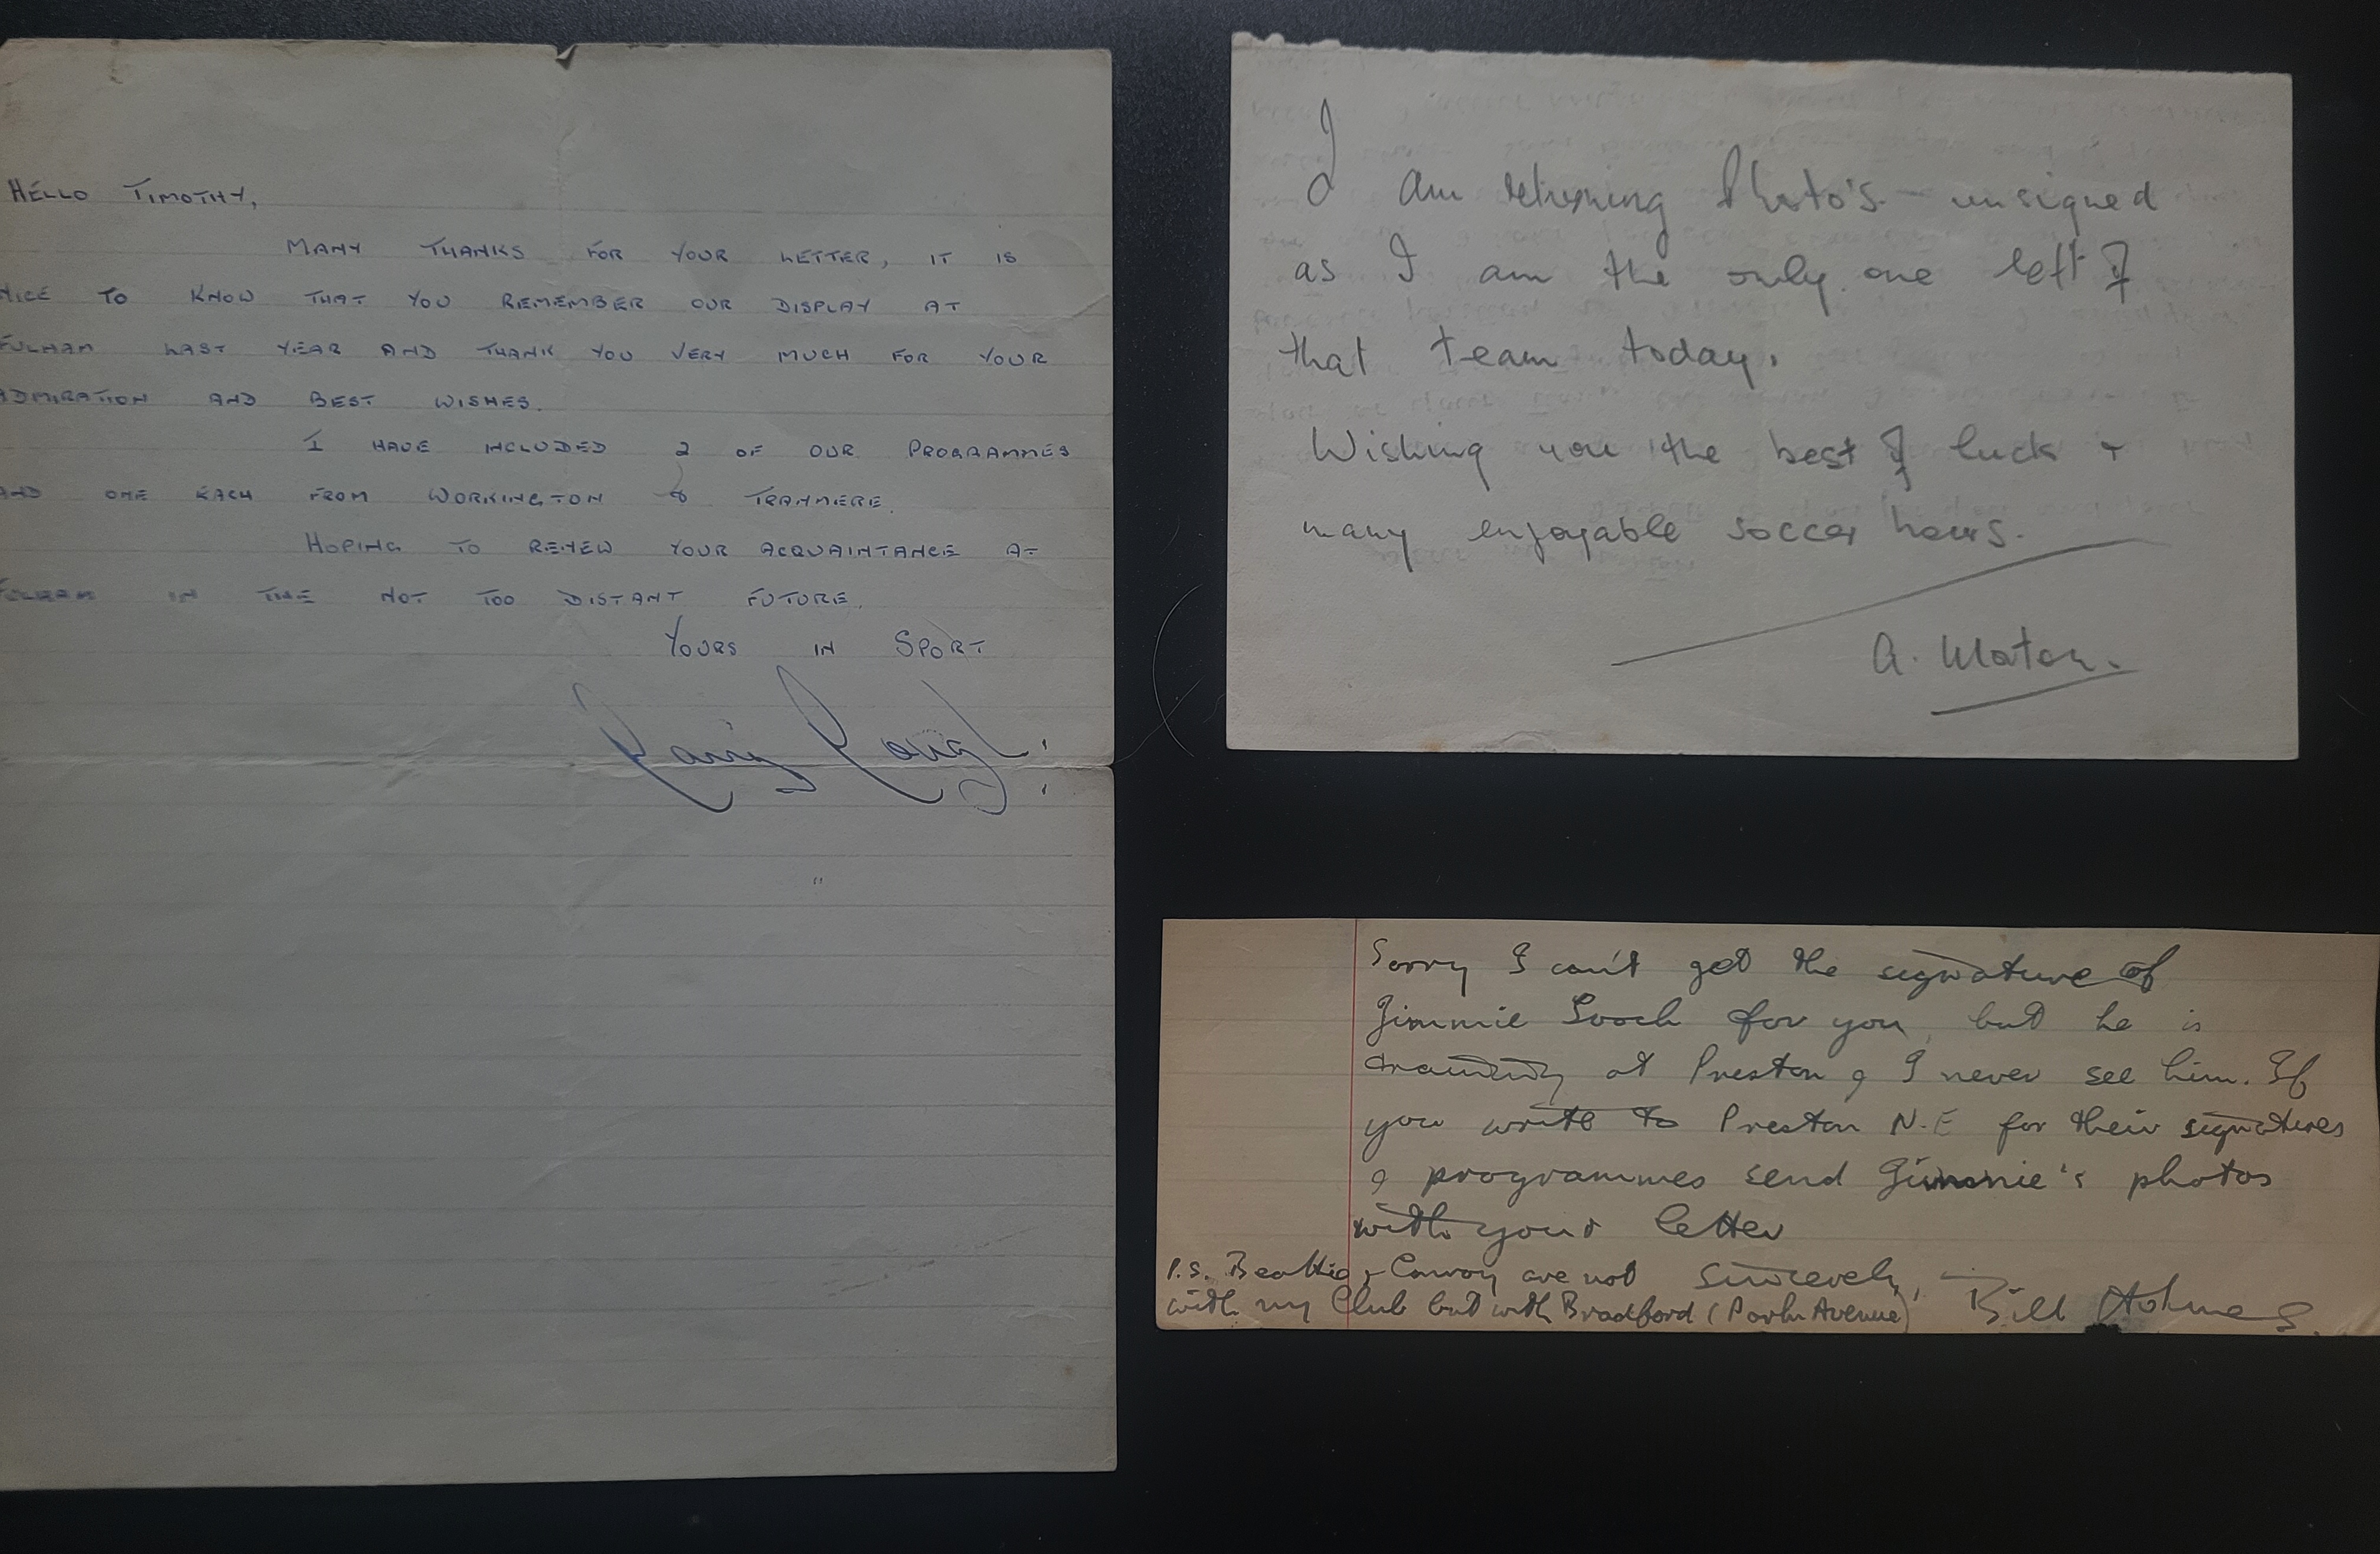 HELLO TIMOTHY,
MANY THANKS FOR YOUR LETTER, IT IS
NICE TO KNOW THAT YOU REMEMBER OUR DISPLAY AT
FULHAM LAST YEAR AND THANK YOU VERY MUCH FOR YOUR
ADMIRATION AND BEST WISHES.
I HAVE INCLUDED 2 OF OUR PROGRAMMES
AND ONE EACH FROM WORKINGTON & TRANMERE.
HOPING TO RENEW YOUR ACQUAINTANCE AT
FULHAM IN THE NOT TOO DISTANT FUTURE.
YOURS IN SPORT
I am returning Photo's - unsigned
as I am the only one left of
that team today.
Wishing you the best of luck +
many enjoyable soccer hours.
A.
Sorry I can't get the signature of
Jimmie for you, but he is
training at Preston & I never see him. If
you write to Preston N.E for their signatures
& programmes send Jimmie's photos
with your letter
Sincerely,
Bill Holmes.
P.S. Beattie & Conroy are not
with my Club but with Bradford (Park Avenue)